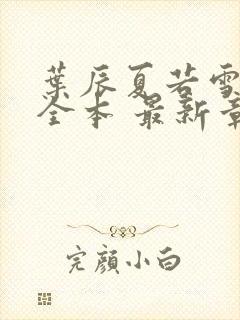 葉辰夏若雪
全本 最新章
完顏小白